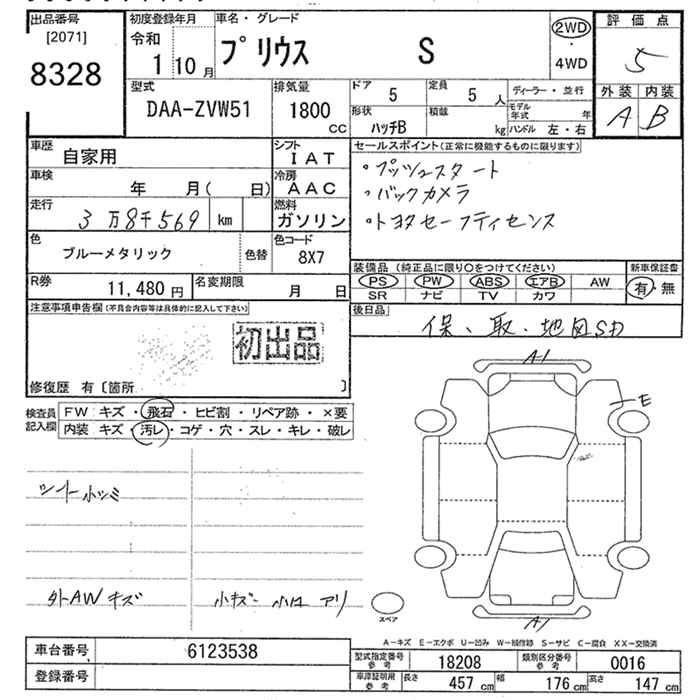 出品番号
[2071]
8328
初度登録年月
令和
1 10 月
車名・グレード
プリウス S
2WD
・
4WD
評価点
5
外装 内装
A B
型式
DAA-ZVW51
排気量
1800
CC
ドア
5
定員
5 人
形状
ハッチB
積載
kg
ディーラー・並行
モデル
年式 年
ハンドル 左・右
車歴
自家用
シフト
IAT
車検
年 月( 日)
冷房
AAC
走行
3 万 8千 569 km
燃料
ガソリン
色
ブルーメタリック
色替
色コード
8X7
R券
11,480 円
名変期限
月 日
セールスポイント(正常に機能するものに限ります)
・プッシュスタート
・バックカメラ
・トヨタセーフティセンス
装備品(純正品に限り○をつけてください)
PS PW ABS エアB AW
SR ナビ TV カワ
新車保証書
有・無
後日品
保、取、地図SD
注意事項申告欄(不具合内容等は具体的に記入して下さい)
初出品
修復歴 有〔箇所 〕
検査員
記入欄
FW キズ・飛石・ヒビ割・リペア跡・×要
内装 キズ・汚レ・コゲ・穴・スレ・キレ・破レ
シート小ツミ
外AWキズ
小キズ 小凹 アリ
A1
E
A1
スペア
A-キズ E-エクボ U-凹み W-補修跡 S-サビ C-腐食 XX-交換済
車台番号
6123538
登録番号
型式指定番号
参考
18208
類別区分番号
参考
0016
車庫証明用
参考
長さ
457 cm
幅
176 cm
高さ
147 cm